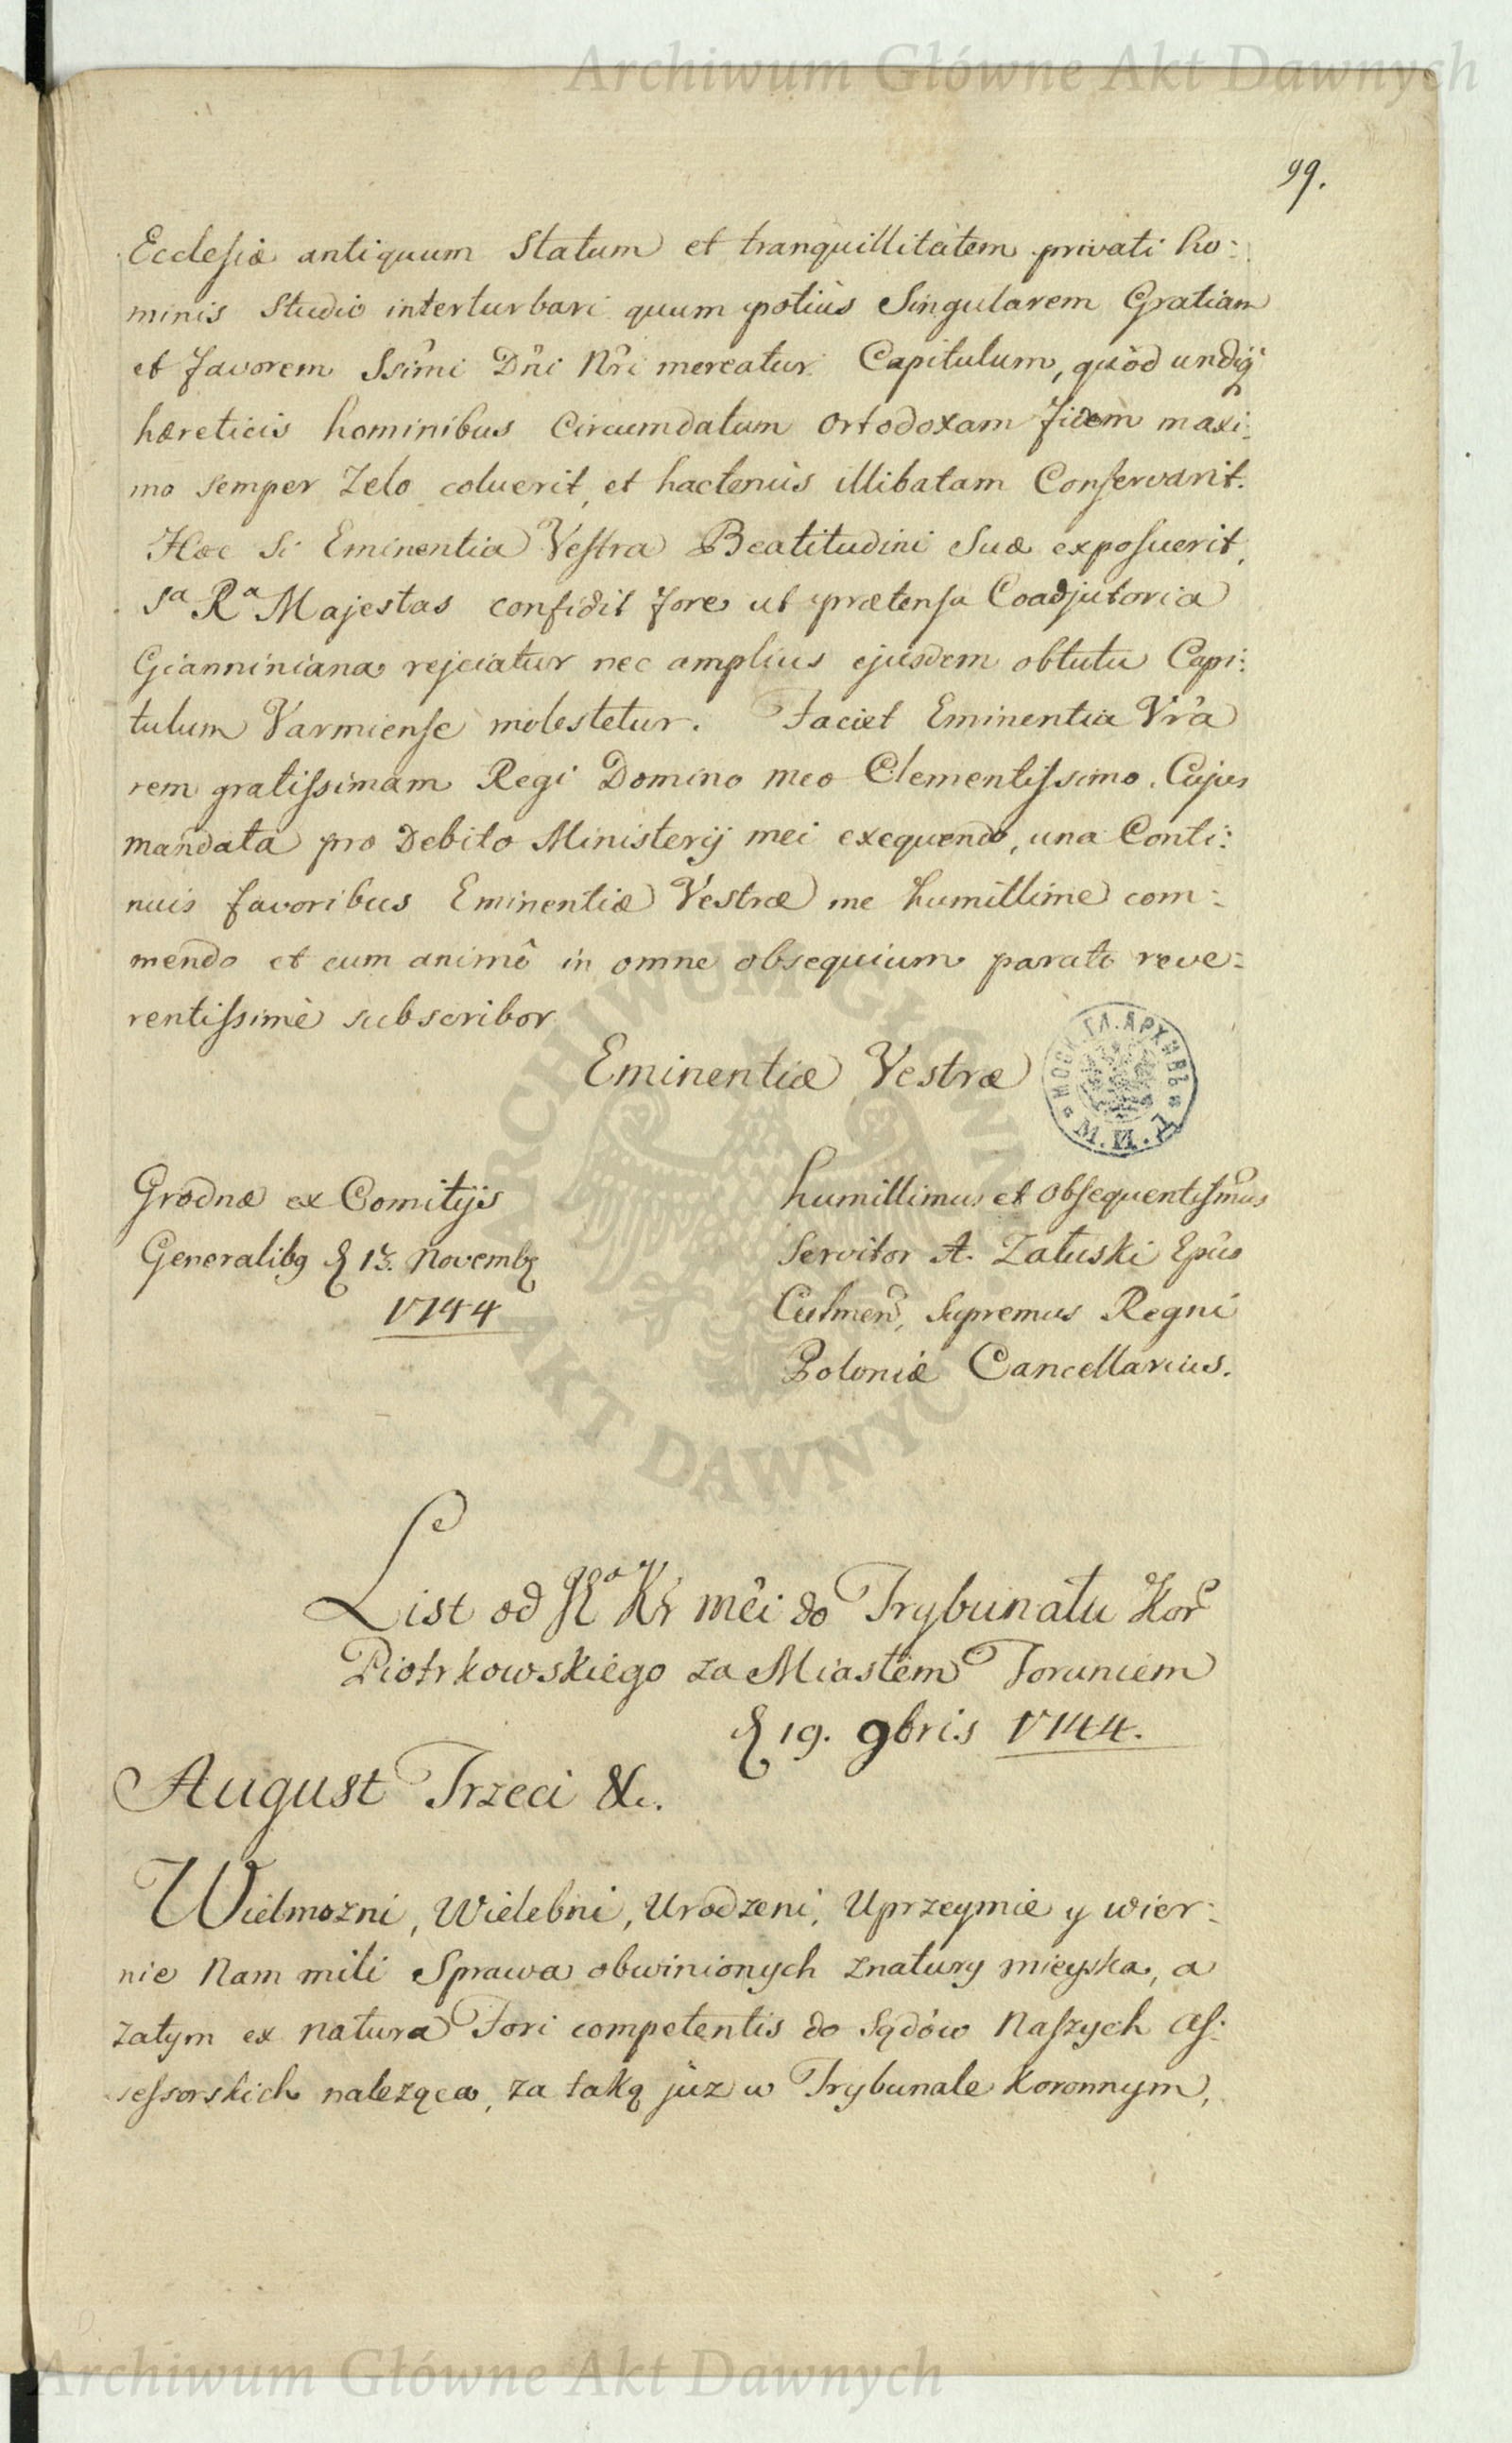 Archiwum Główne Akt Dawnych
99.
Ecclesiæ antiquum Statum et tranquillitatem privati ho:
minis Studio interturbari quum potiùs Singularem Gratiam
et favorem Ssimi Dñi Nri mereatur Capitulum, quòd undiq́
hæreticis hominibus Circumdatum Ortodoxam fidem maxi:
mo semper Zelo coluerit, et hactenùs illibatam Conservarit.
Hæc Si Eminentia Vestra Beatitudini Suæ exposuerit,
Sa Ra Majestas confidit fore ut prætensa Coadjutoria
Gianniniana rejciatur nec amplius ejusdem obtutu Capi:
tulum Varmiense molestetur. Faciet Eminentia Vra
rem gratissimam Regi Domino meo Clementissimo. Cujus
mandata pro Debito Ministerij mei exequendo, una Conti:
nuis favoribus Eminentiæ Vestræ me humillime com:
mendo et cum animô in omne obsequium parato reve:
rentissimè subscribor
Eminentiæ Vestræ
МОСК. ГЛ. АРХИВЪ
М. И. Д.
Grodnæ ex Comitijs
Generalibq d 13. Novembq
1744
humillimus et Obsequentissmus
Servitor A. Załuski Epûs
Culmen, Supremus Regni
Poloniæ Cancellarius.
ARCHIWUM GŁÓWNE
AKT DAWNYCH
List od Ja Kr mci do Trybunału Kor
Piotrkowskiego za Miastem Toruniem
d 19. 9bris 1744.
August Trzeci &c.
Wielmozni, Wielebni, Urodzeni, Uprzeymie y wier:
nie Nam mili Sprawa obwinionych znatury mieyska, a
zatym ex natura Fori competentis do Sądów Naszych As:
sessorskich naleząca, za taką juz w Trybunale Koronnym,
Archiwum Główne Akt Dawnych